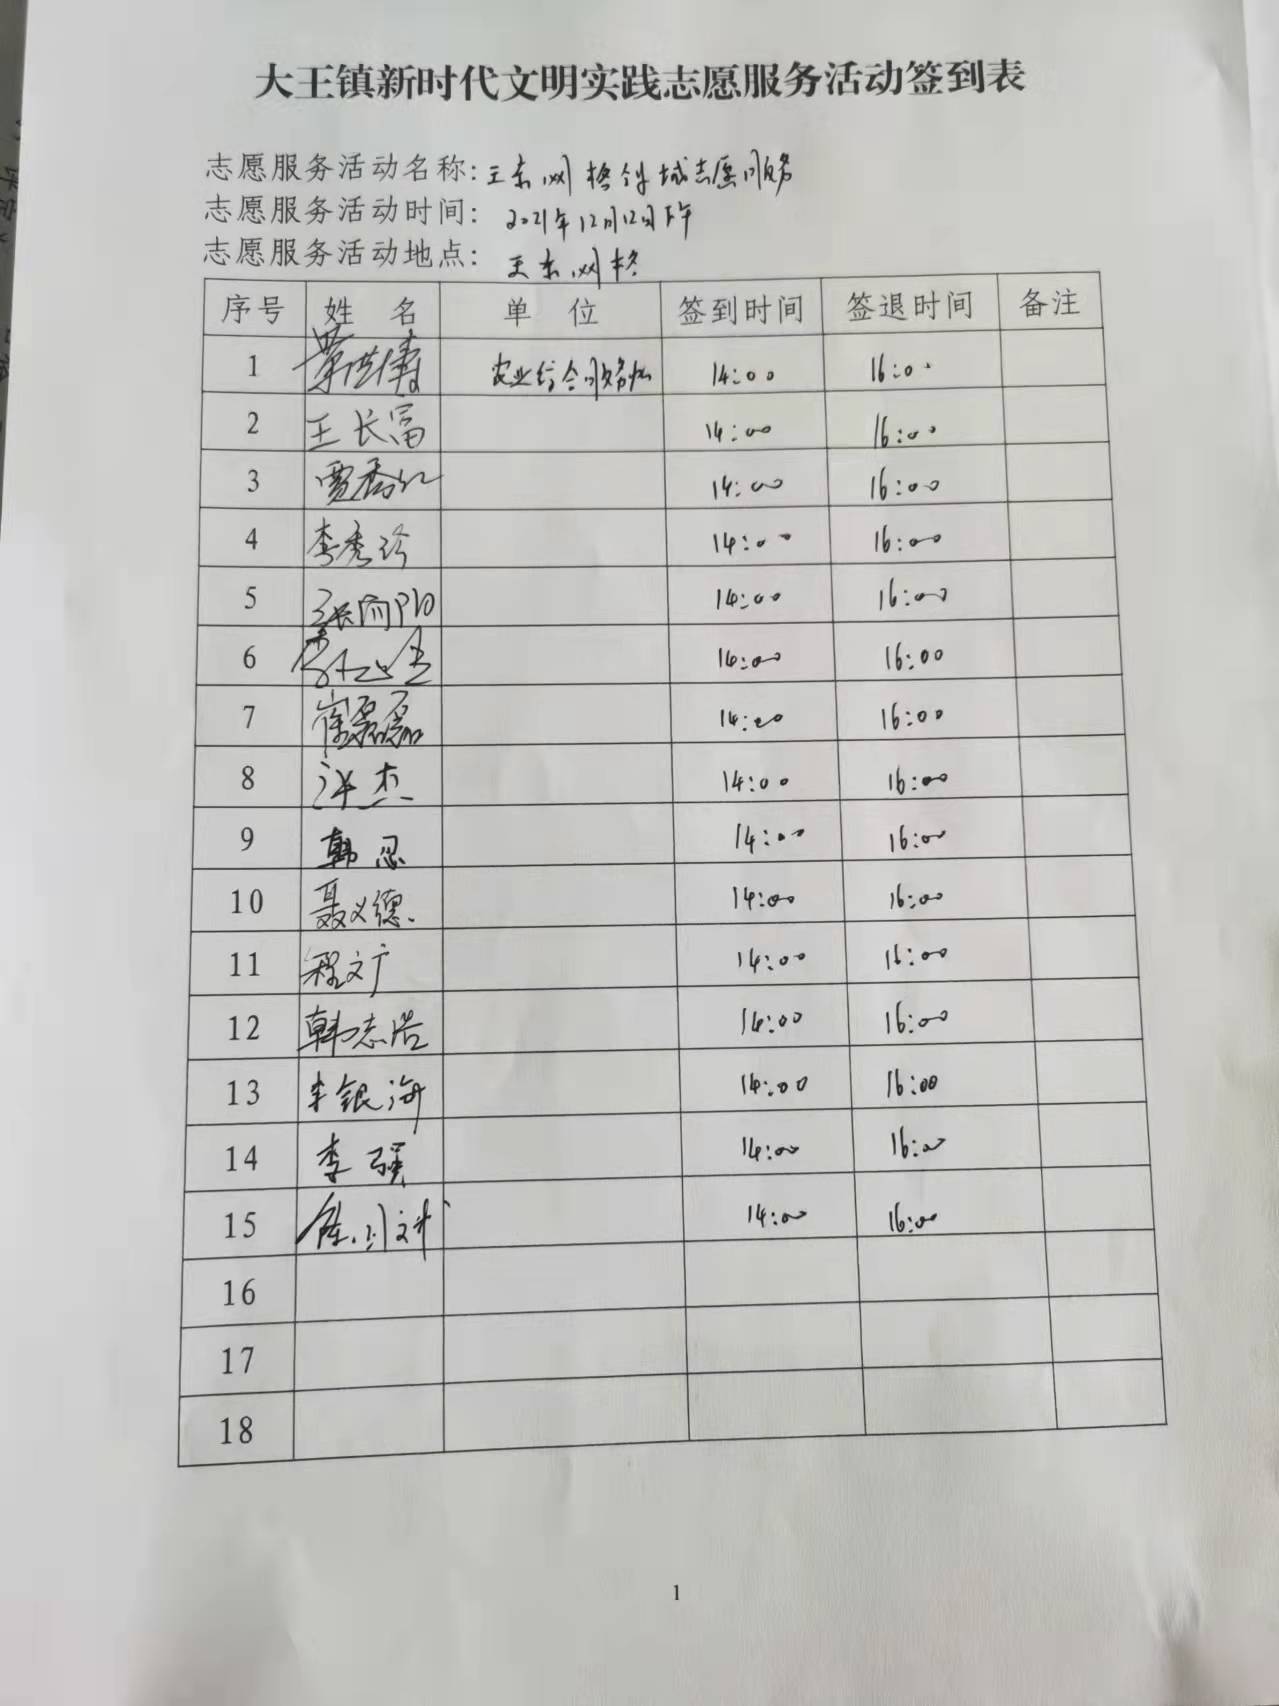 大王镇新时代文明实践志愿服务活动签到表
志愿服务活动名称:王东网格创城志愿服务
志愿服务活动时间: 2021年12月12日下午
志愿服务活动地点: 王东网格
序号 姓 名 单 位 签到时间 签退时间 备注
1 农业综合服务 14:00 16:00
2 王长富 14:00 16:00
3 贾 14:00 16:00
4 李秀珍 14:00 16:00
5 张 14:00 16:00
6 14:00 16:00
7 崔磊磊 14:00 16:00
8 许杰 14:00 16:00
9 韩忍 14:00 16:00
10 聂义德 14:00 16:00
11 程文广 14:00 16:00
12 韩志浩 14:00 16:00
13 银海 14:00 16:00
14 李强 14:00 16:00
15 14:00 16:00
16
17
18
1